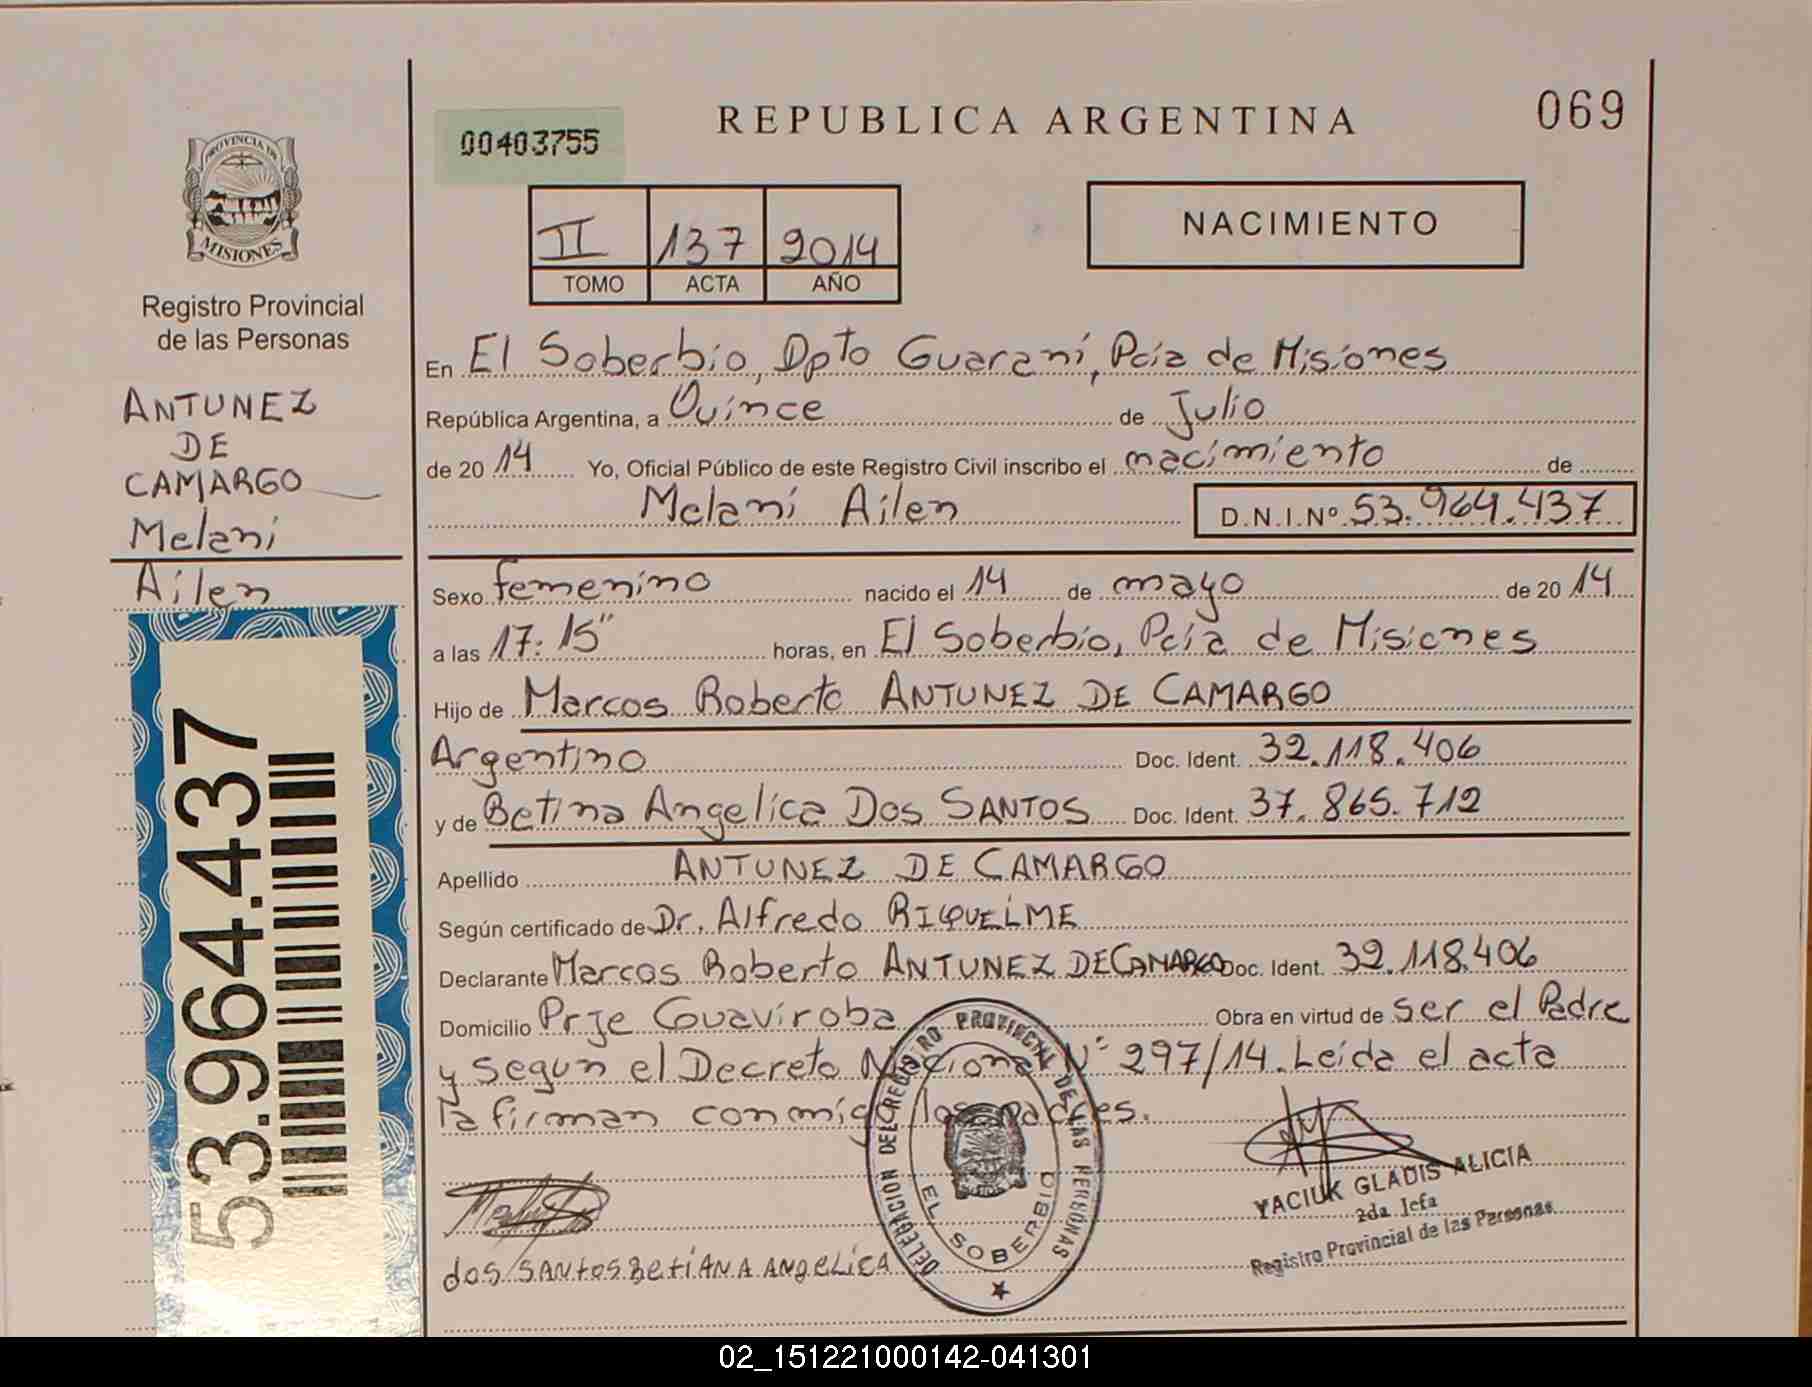 REPUBLICA ARGENTINA
069
00403755
PROVINCIA DE
MISIONES
II 137 2014
TOMO ACTA AÑO
NACIMIENTO
Registro Provincial
de las Personas
ANTUNEZ
DE
CAMARGO
Melani
Ailen
53.964.437
En El Soberbio, Dpto Guarani, Pcia de Misiones
República Argentina, a Quince de Julio
de 2014 Yo, Oficial Público de este Registro Civil inscribo el nacimiento de
Melani Ailen D.N.I.Nº 53.964.437
Sexo femenino nacido el 14 de mayo de 2014
a las 17:15" horas, en El Soberbio, Pcia de Misiones
Hijo de Marcos Roberto ANTUNEZ DE CAMARGO
Argentino Doc. Ident. 32.118.406
y de Betina Angelica DOS SANTOS Doc. Ident. 37.865.712
Apellido ANTUNEZ DE CAMARGO
Según certificado de Dr. Alfredo RIQUELME
Declarante Marcos Roberto ANTUNEZ DE CAMARGO Doc. Ident. 32.118.406
Domicilio Prje Guaviroba Obra en virtud de ser el Padre
y segun el Decreto Nacional N° 297/14. Leida el acta
la firman conmigo los padres.
DELEGACION DEL REGISTRO PROVINCIAL DE LAS PERSONAS
EL SOBERBIO
YACIUK GLADIS ALICIA
2da Jefa
Registro Provincial de las Personas
dos SANtos BetiANA ANgeLiCA
02_151221000142-041301